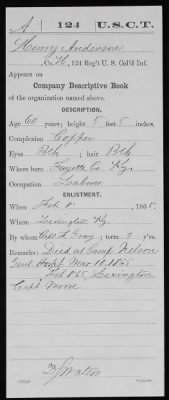 A 124 U.S.C.T.
Henry Anderson
Co. H, 124 Reg't U. S. Col'd Inf.
Appears on
Company Descriptive Book
of the organization named above.
DESCRIPTION.
Age 60 years; height 5 feet 5 inches.
Complexion Copper
Eyes Blk; hair Blk
Where born Fayette Co. Ky.
Occupation Labor
ENLISTMENT.
When Feb , 1865.
Where Lexington Ky.
By whom Capt Gray; term 3 y'rs.
Remarks: Died at Camp Nelson
Genl Hosp Mar 1865
Feb 65, Lexington
Capt Moore
Waters